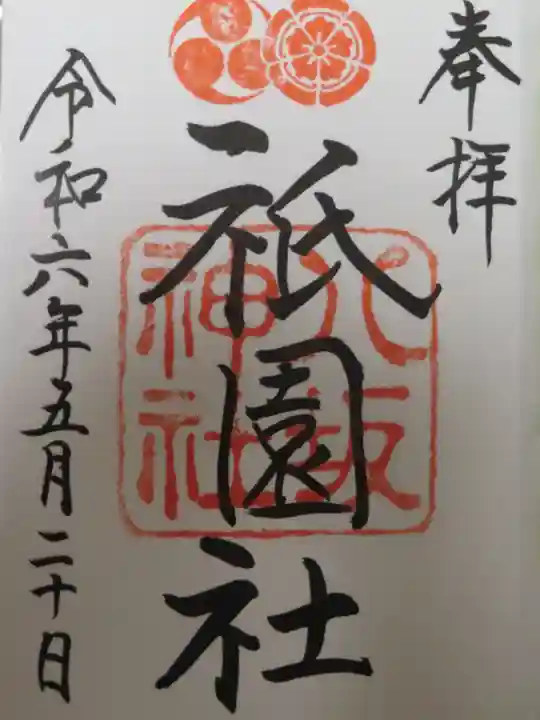 奉拝
祇園社
八坂
神社
令和六年五月二十日